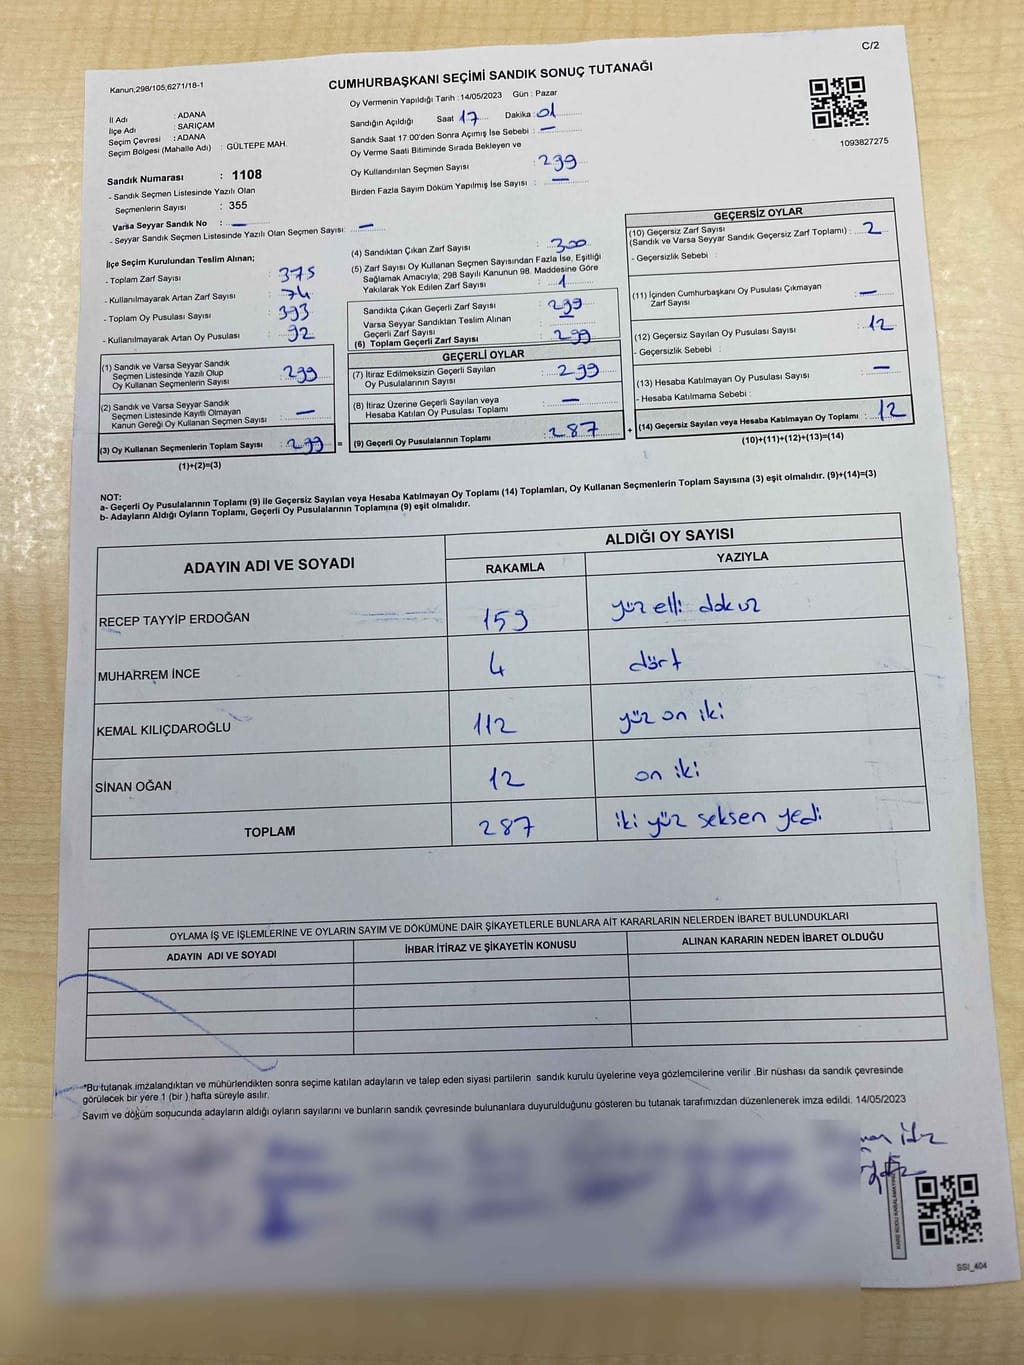 C/2
Kanun;298/105;6271/18-1
CUMHURBAŞKANI SEÇİMİ SANDIK SONUÇ TUTANAĞI
Oy Vermenin Yapıldığı Tarih :14/05/2023 Gün : Pazar
İl Adı : ADANA
İlçe Adı : SARIÇAM
Seçim Çevresi : ADANA
Seçim Bölgesi (Mahalle Adı) : GÜLTEPE MAH.
Sandığın Açıldığı Saat 17 Dakika : 01
Sandık Saat 17:00'den Sonra Açımış İse Sebebi : —
Oy Verme Saati Bitiminde Sırada Bekleyen ve
Oy Kullandırılan Seçmen Sayısı : 299
Birden Fazla Sayım Döküm Yapılmış İse Sayısı : —
1093827275
Sandık Numarası : 1108
- Sandık Seçmen Listesinde Yazılı Olan
Seçmenlerin Sayısı : 355
Varsa Seyyar Sandık No : —
- Seyyar Sandık Seçmen Listesinde Yazılı Olan Seçmen Sayısı: —
İlçe Seçim Kurulundan Teslim Alınan;
- Toplam Zarf Sayısı : 375
- Kullanılmayarak Artan Zarf Sayısı : 74
- Toplam Oy Pusulası Sayısı : 393
- Kullanılmayarak Artan Oy Pusulası : 92
(1) Sandık ve Varsa Seyyar Sandık
Seçmen Listesinde Yazılı Olup
Oy Kullanan Seçmenlerin Sayısı : 299
(2) Sandık ve Varsa Seyyar Sandık
Seçmen Listesinde Kayıtlı Olmayan
Kanun Gereği Oy Kullanan Seçmen Sayısı : —
(3) Oy Kullanan Seçmenlerin Toplam Sayısı : 299 =
(1)+(2)=(3)
(4) Sandıktan Çıkan Zarf Sayısı : 300
(5) Zarf Sayısı Oy Kullanan Seçmen Sayısından Fazla İse, Eşitliği
Sağlamak Amacıyla; 298 Sayılı Kanunun 98. Maddesine Göre
Yakılarak Yok Edilen Zarf Sayısı : 1
Sandıkta Çıkan Geçerli Zarf Sayısı : 299
Varsa Seyyar Sandıktan Teslim Alınan
Geçerli Zarf Sayısı : —
(6) Toplam Geçerli Zarf Sayısı : 299
GEÇERLİ OYLAR
(7) İtiraz Edilmeksizin Geçerli Sayılan
Oy Pusulalarının Sayısı : 299
(8) İtiraz Üzerine Geçerli Sayılan veya
Hesaba Katılan Oy Pusulası Toplamı : —
(9) Geçerli Oy Pusulalarının Toplamı : 287 +
GEÇERSİZ OYLAR
(10) Geçersiz Zarf Sayısı
(Sandık ve Varsa Seyyar Sandık Geçersiz Zarf Toplamı) : 2
- Geçersizlik Sebebi :
(11) İçinden Cumhurbaşkanı Oy Pusulası Çıkmayan
Zarf Sayısı : —
(12) Geçersiz Sayılan Oy Pusulası Sayısı : 12
- Geçersizlik Sebebi :
(13) Hesaba Katılmayan Oy Pusulası Sayısı : —
- Hesaba Katılmama Sebebi :
(14) Geçersiz Sayılan veya Hesaba Katılmayan Oy Toplamı : 12
(10)+(11)+(12)+(13)=(14)
NOT:
a- Geçerli Oy Pusulalarının Toplamı (9) ile Geçersiz Sayılan veya Hesaba Katılmayan Oy Toplamı (14) Toplamları, Oy Kullanan Seçmenlerin Toplam Sayısına (3) eşit olmalıdır. (9)+(14)=(3)
b- Adayların Aldığı Oyların Toplamı, Geçerli Oy Pusulalarının Toplamına (9) eşit olmalıdır.
ADAYIN ADI VE SOYADI
ALDIĞI OY SAYISI
RAKAMLA YAZIYLA
RECEP TAYYİP ERDOĞAN 159 yüz elli dokuz
MUHARREM İNCE 4 dört
KEMAL KILIÇDAROĞLU 112 yüz on iki
SİNAN OĞAN 12 on iki
TOPLAM 287 iki yüz seksen yedi
OYLAMA İŞ VE İŞLEMLERİNE VE OYLARIN SAYIM VE DÖKÜMÜNE DAİR ŞİKAYETLERLE BUNLARA AİT KARARLARIN NELERDEN İBARET BULUNDUKLARI
ADAYIN ADI VE SOYADI İHBAR İTİRAZ VE ŞİKAYETİN KONUSU ALINAN KARARIN NEDEN İBARET OLDUĞU
*Bu tutanak imzalandıktan ve mühürlendikten sonra seçime katılan adayların ve talep eden siyasi partilerin sandık kurulu üyelerine veya gözlemcilerine verilir .Bir nüshası da sandık çevresinde
görülecek bir yere 1 (bir ) hafta süreyle asılır.
Sayım ve döküm sonucunda adayların aldığı oyların sayılarını ve bunların sandık çevresinde bulunanlara duyurulduğunu gösteren bu tutanak tarafımızdan düzenlenerek imza edildi. 14/05/2023
KARE KODU KARALAMAYINIZ
SSI_404